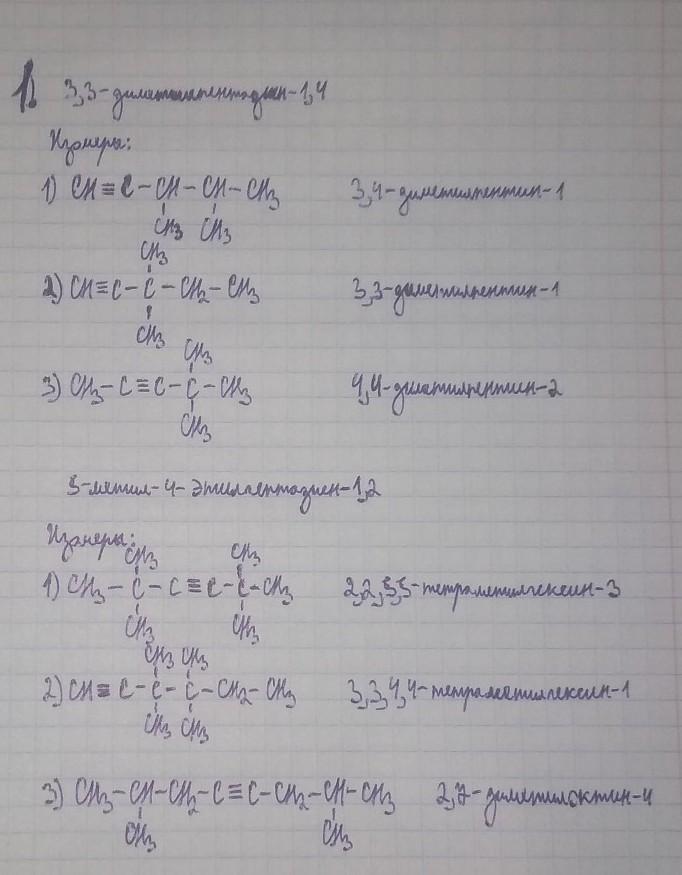 1. 3,3-диметилпентадиен-1,4
Изомеры:
1) CH≡C-CH-CH-CH₃ 3,4-диметилпентин-1
CH₃ CH₃
CH₃
2) CH≡C-C-CH₂-CH₃ 3,3-диметилпентин-1
CH₃
CH₃
3) CH₃-C≡C-C-CH₃ 4,4-диметилпентин-2
CH₃
5-метил-4-этилгептадиен-1,2
Изомеры:
CH₃ CH₃
1) CH₃-C-C≡C-C-CH₃ 2,2,5,5-тетраметилгексин-3
CH₃ CH₃
CH₃ CH₃
2) CH≡C-C-C-CH₂-CH₃ 3,3,4,4-тетраметилгексин-1
CH₃ CH₃
3) CH₃-CH-CH₂-C≡C-CH₂-CH-CH₃ 2,7-диметилоктин-4
CH₃ CH₃